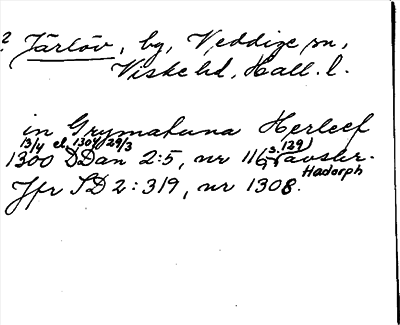 ? Järlöv, by, Veddige sn,
Viske hd, Hall. l.
in Grymahuna Herleef
13/4 el. 1304 29/3
1300 DDan 2:5, nr 116 (s. 129) avskr.
Hadorph
Jfr SD 2:319, nr 1308.